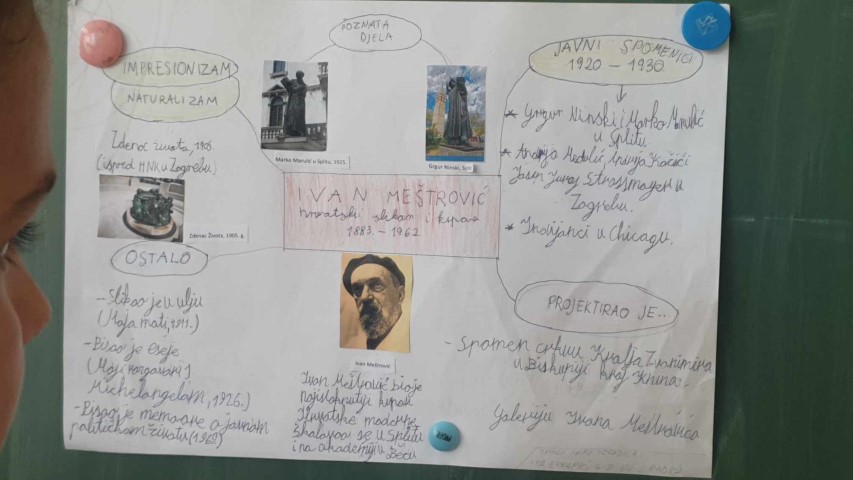 POZNATA
DJELA
IMPRESIONIZAM
NATURALIZAM
Zdenac života, 1905.
(ispred HNK u Zagrebu)
Zdenac Života, 1905. g.
Marko Marulić u Splitu, 1925.
Grgur Ninski, Split
JAVNI SPOMENICI
1920 – 1930
* Grgur Ninski i Marko Marulić
u Splitu
* Andrija Medulić, Andrija Kačić
Josip Juraj Strossmayer u
Zagrebu.
* Indijanci u Chicagu.
IVAN MEŠTROVIĆ
hrvatski slikar i kipar
1883. – 1962
OSTALO
- Slikao je u ulju
(Moja mati, 1911.)
- Pisao je eseje
(Moji razgovori s
Michelangelom, 1926.)
- Pisao je memoare o javnom
političkom životu
Ivan Meštrović
Ivan Meštrović bio je
najistaknutiji kipar
Hrvatske moderne
školovao se u Splitu
i na akademiji u Beču
PROJEKTIRAO JE..
- Spomen crkvu Kralja Zvonimira
u Biskupiji kraj Knina.
Galeriju Ivana Meštrovića